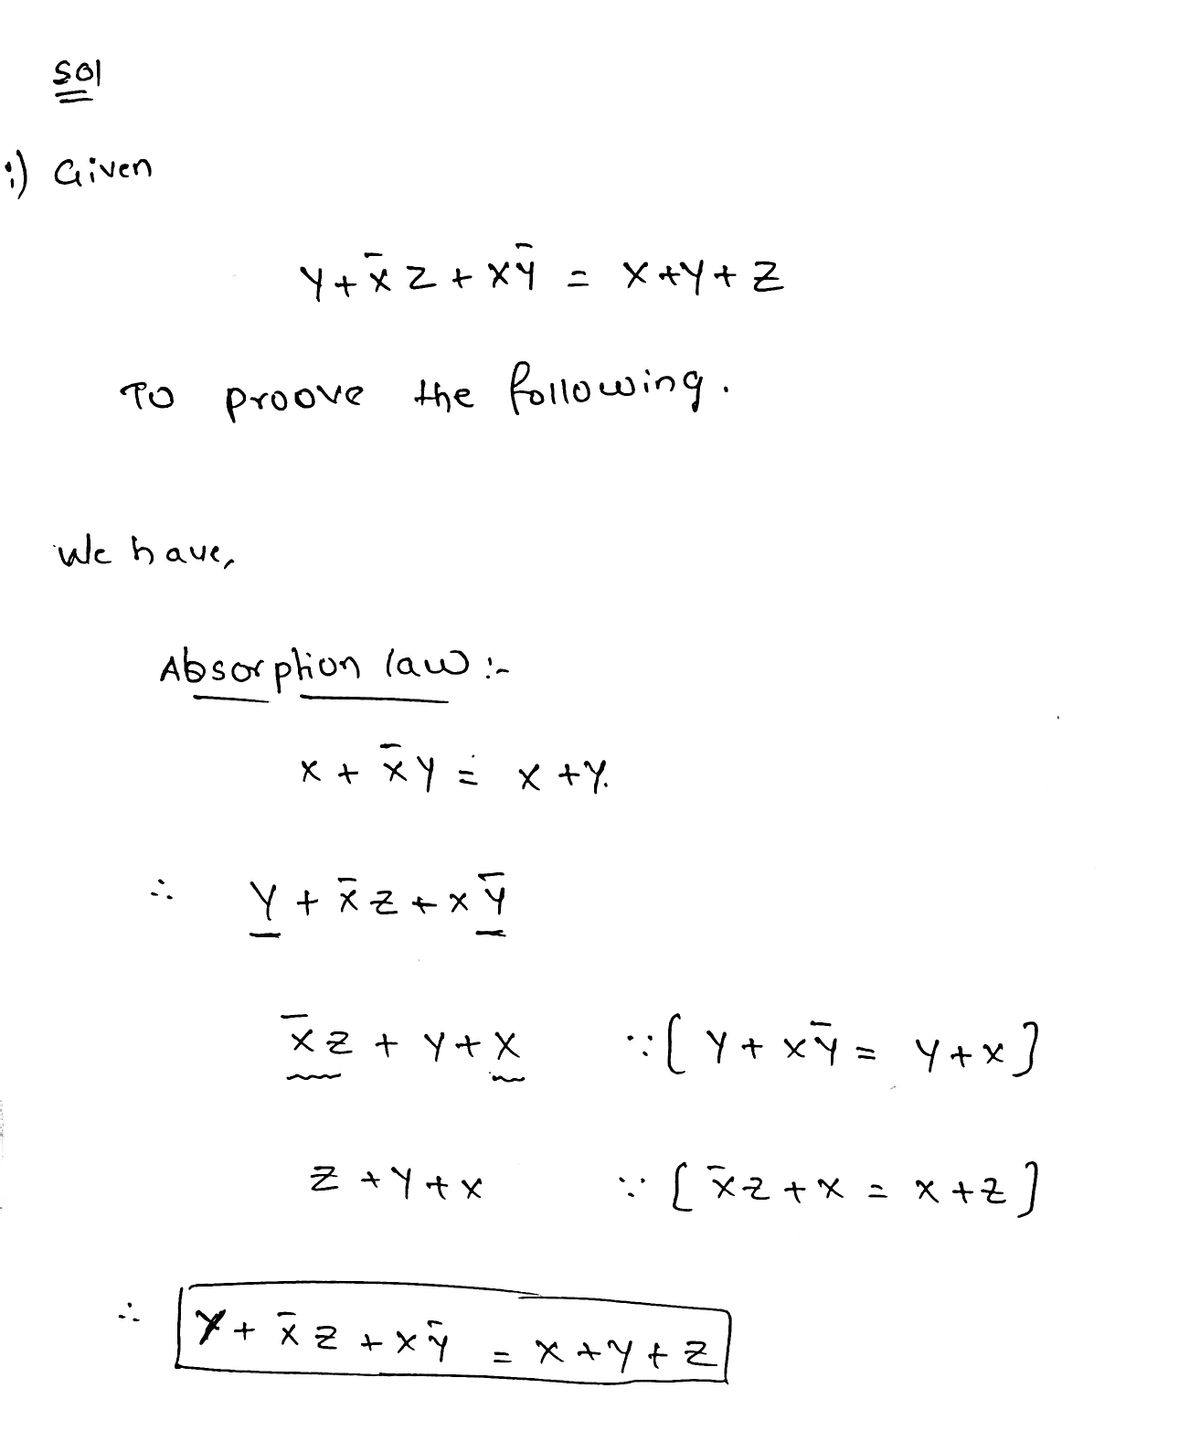 Sol
:) Given
Y + X̄ Z + X Ȳ = X + Y + Z
To proove the following.
We have,
Absorption law :-
X + X̄ Y = X + Y.
∴ Y + X̄ Z + X Ȳ
X̄ Z + Y + X ∵ [ Y + X Ȳ = Y + X ]
Z + Y + X ∵ [ X̄ Z + X = X + Z ]
∴ Y + X̄ Z + X Ȳ = X + Y + Z